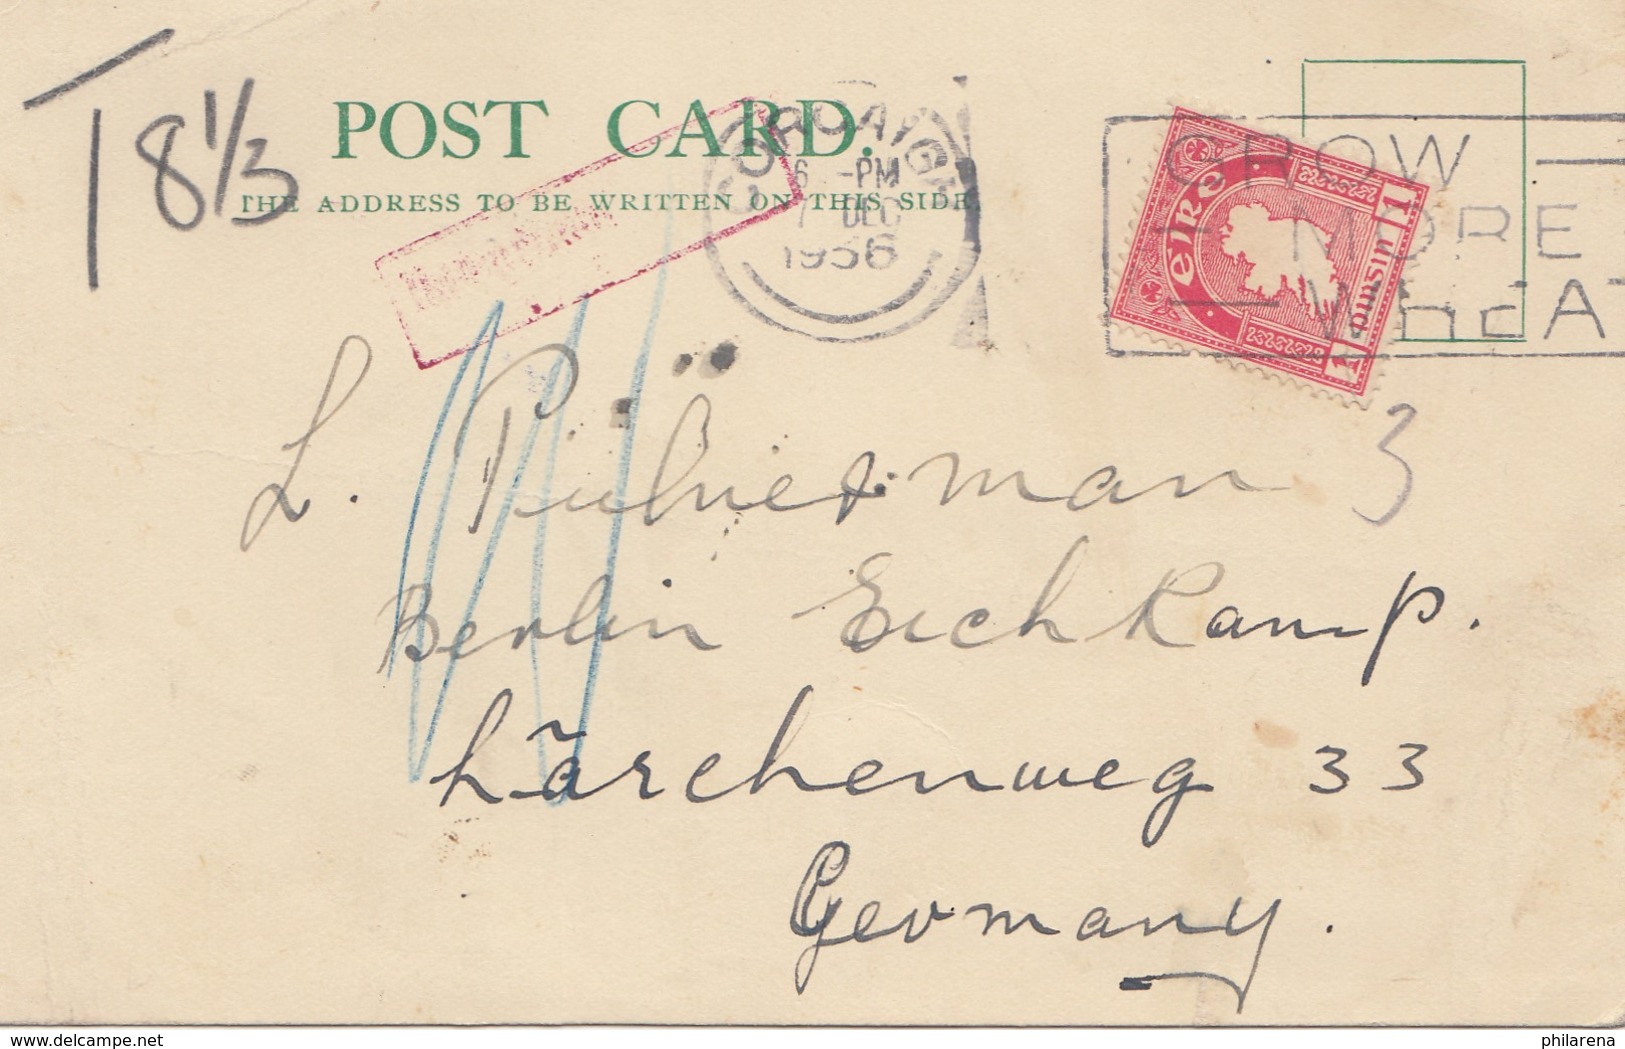 T 8 1/3
POST CARD.
THE ADDRESS TO BE WRITTEN ON THIS SIDE
CORCAIGH
6 -PM
7 DEC
1936
GROW
MORE
WHEAT
eIRe
1 pinsin 1
3
L.
Berlin Eichkamp.
Lärchenweg 33
Germany.
www.delcampe.net
philarena